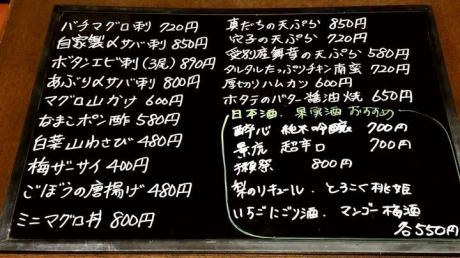 バチマグロ刺 720円
自家製〆サバ刺 850円
ボタンエビ刺(3尾) 890円
あぶり〆サバ刺 800円
マグロ山かけ 600円
なまこポン酢 580円
白菜山わさび 480円
梅ザーサイ 400円
ごぼうの唐揚げ 480円
ミニマグロ丼 800円
真だちの天ぷら 850円
穴子の天ぷら 720円
愛別産舞茸の天ぷら 580円
タルタルたっぷりチキン南蛮 720円
厚切りハムカツ 600円
ホタテのバター醤油焼 650円
日本酒、果実酒 おすすめ
酔心 純米吟醸 700円
景虎 超辛口 700円
獺祭 800円
梨のリキュール、とろこく桃姫
いちごにごり酒、マンゴー梅酒
各550円